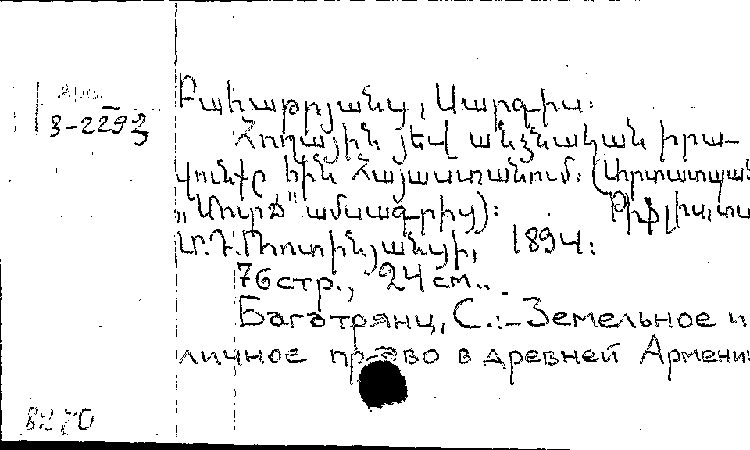 Арм.
3-2293
Բահաթրյանց, Սարգիս:
Հողային յեվ անձնական իրա-
վունքը հին Հայաստանում: (Արտատպած
„Մուրճ" ամսագրից): Թիֆլիս, տպ
Մ. Դ. Ռոտինյանցի, 1894:
76 стр., 24 см..
Багатрянц, С.:-Земельное и
личное право в древней Армении
8270